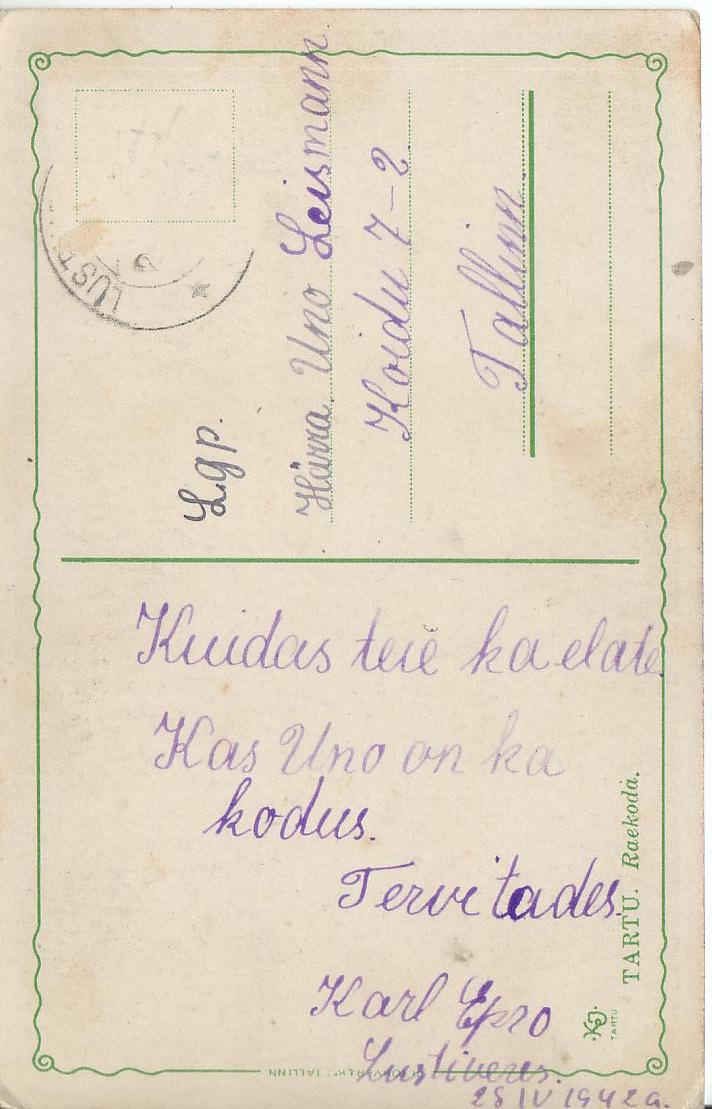 L.g.p.
Härra Uno Leismann
Koidu 7-2
Tallinn
Kuidas teie ka elate
Kas Uno on ka
kodus.
Tervitades.
Karl Epro
Lustiveres.
28 IV 1942 a.
TARTU. Raekoda.
TARTU
TALLINN
LUST